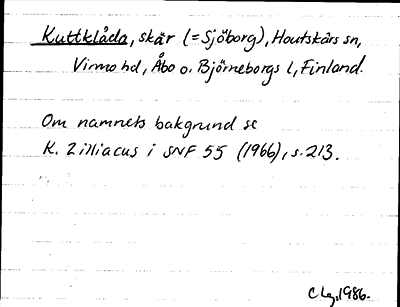 Kuttklåda, skär (= Sjöborg), Houtskärs sn,
Virmo hd, Åbo o. Björneborgs l, Finland.
Om namnets bakgrund se
K. Zilliacus i SNF 55 (1966), s. 213.
CLg, 1986.